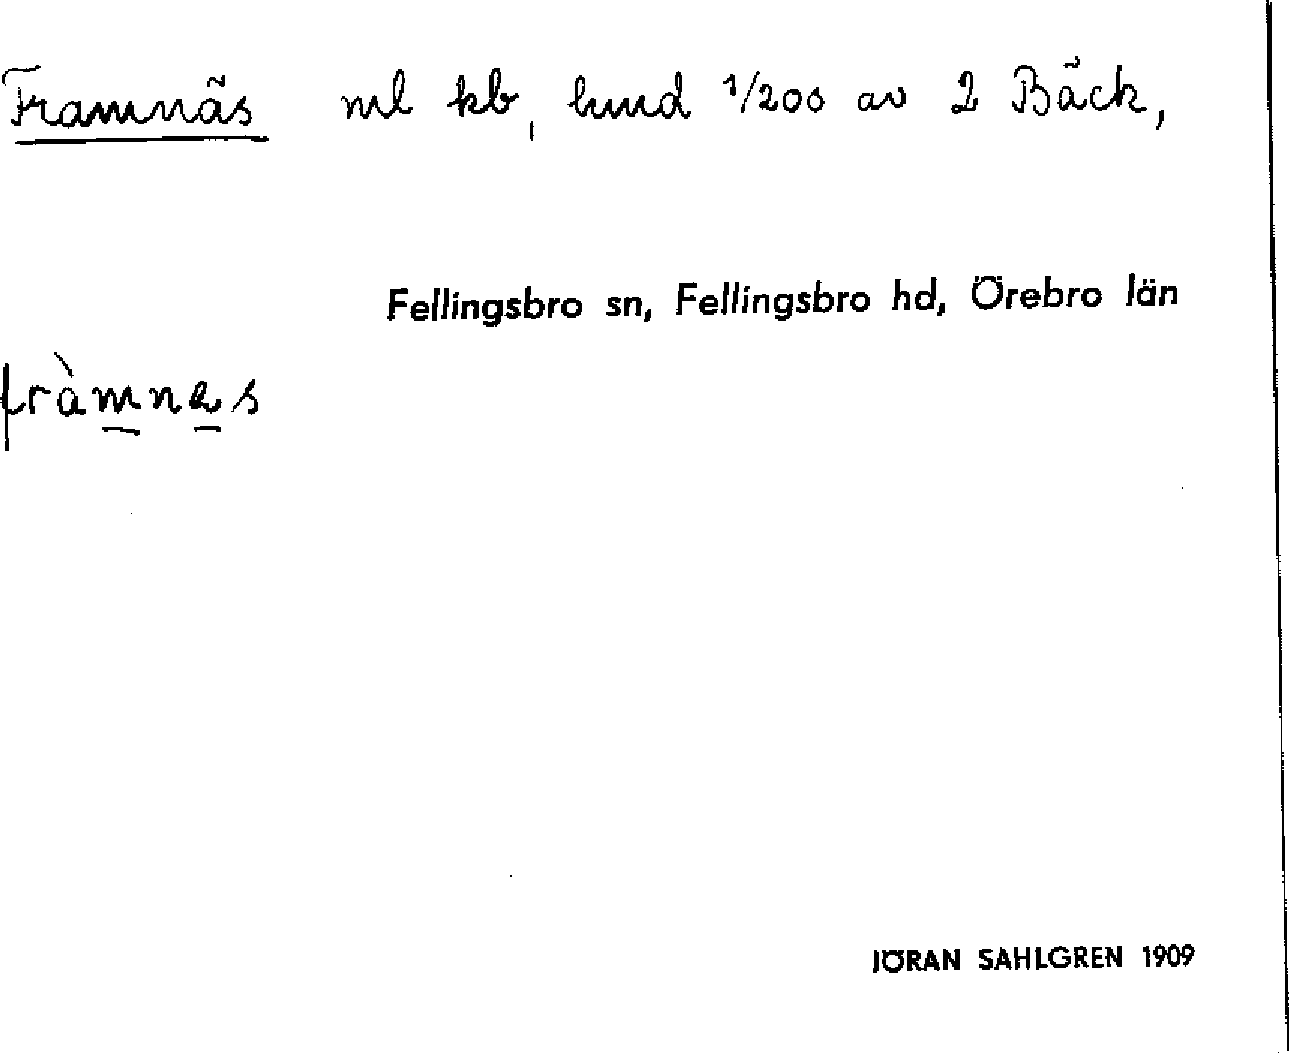 Framnäs ml kb, lund 1/208 av 2 Bäck,
Fellingsbro sn, Fellingsbro hd, Örebro län
fràmnas
JÖRAN SAHLGREN 1909